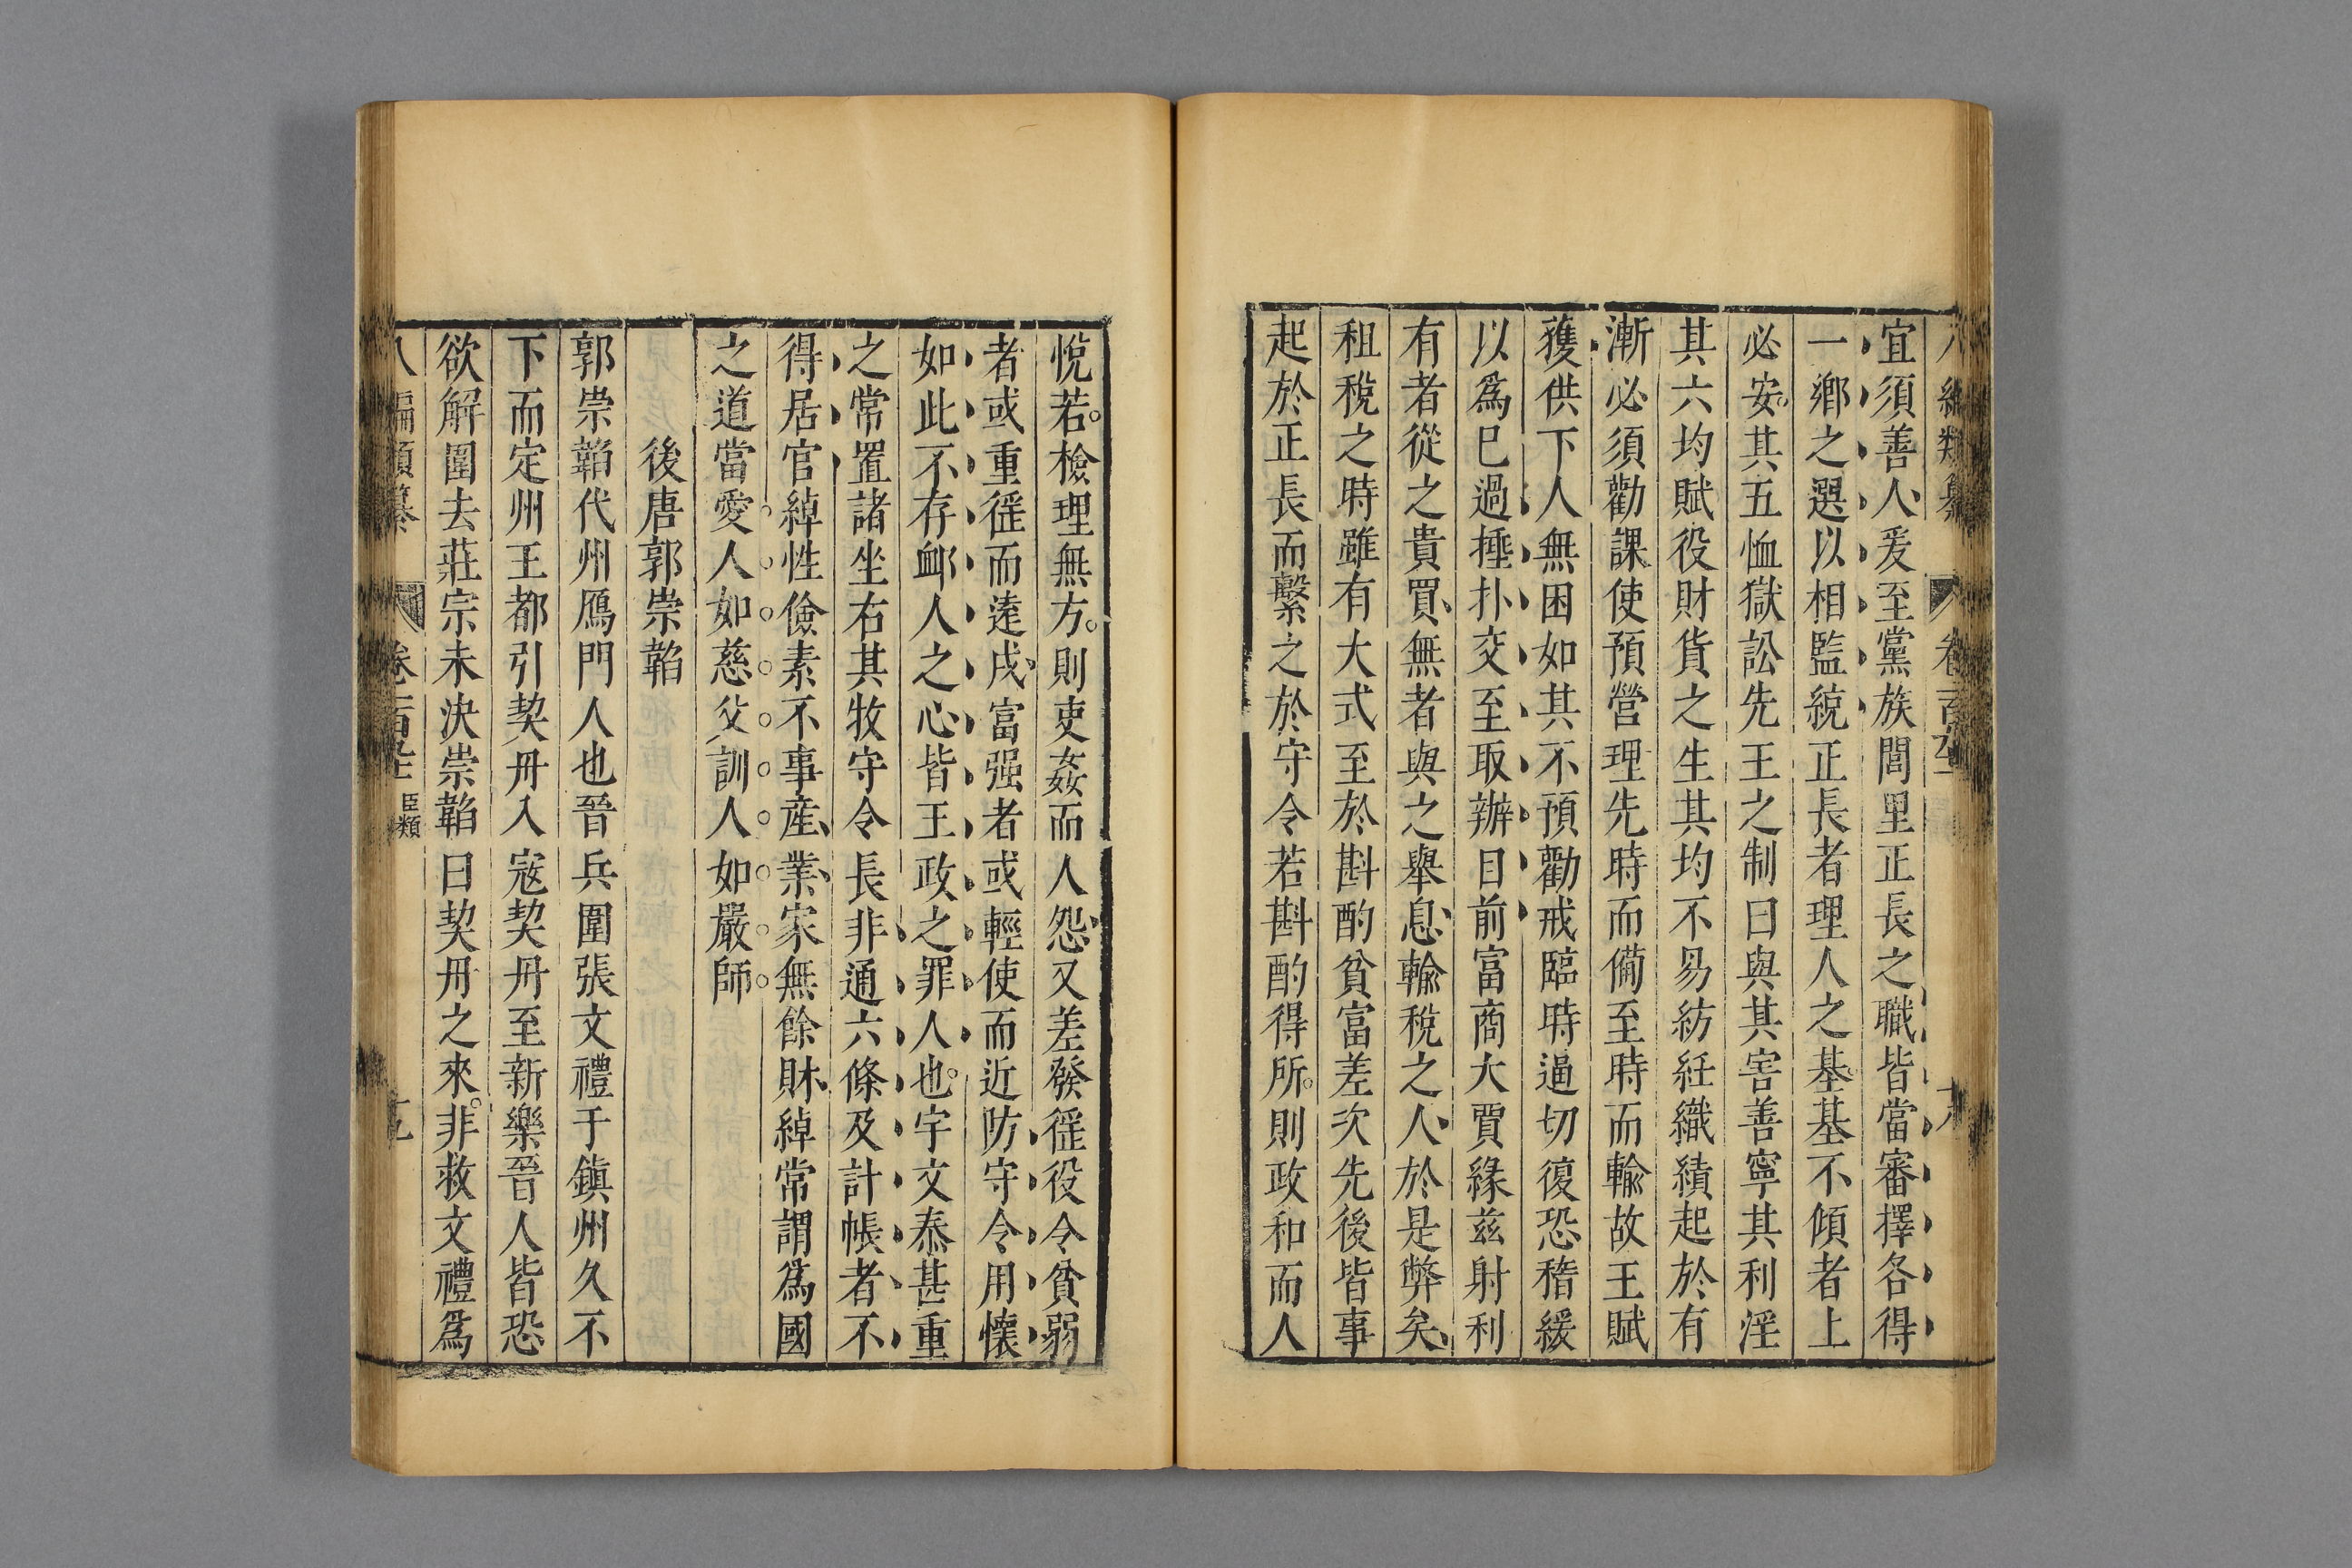 宜須善人爰至黨族閭里正長之職皆當審擇各得
一鄉之選以相監統正長者理人之基基不傾者上
必安其五恤獄訟先王之制曰與其害善寧其利淫
其六均賦役財貨之生其均不易紡絍織績起於有
漸必須勸課使預營理先時而備至時而輸故王賦
獲供下人無困如其不預勸戒臨時逼切復恐稽緩
以爲巳過捶扑交至取辦目前富商大賈緣兹射利
有者從之貴買無者與之舉息輸稅之人於是弊矣
租稅之時雖有大式至於斟酌貧富差次先後皆事
起於正長而繫之於守令若斟酌得所則政和而人
悅若檢理無方則吏姦而人怨又差發徭役令貧弱
者或重徭而遠戍富强者或輕使而近防守令用懷
如此不存䘏人之心皆王政之罪人也宇文泰甚重
之常置諸坐右其牧守令長非通六條及計帳者不
得居官綽性儉素不事產業家無餘財綽常謂爲國
之道當愛人如慈父訓人如嚴師
後唐郭崇韜
郭崇韜代州鴈門人也晉兵圍張文禮于鎮州久不
下而定州王都引契丹入寇契丹至新樂晉人皆恐
欲解圍去莊宗未決崇韜曰契丹之來非救文禮爲
八編類纂 臣類